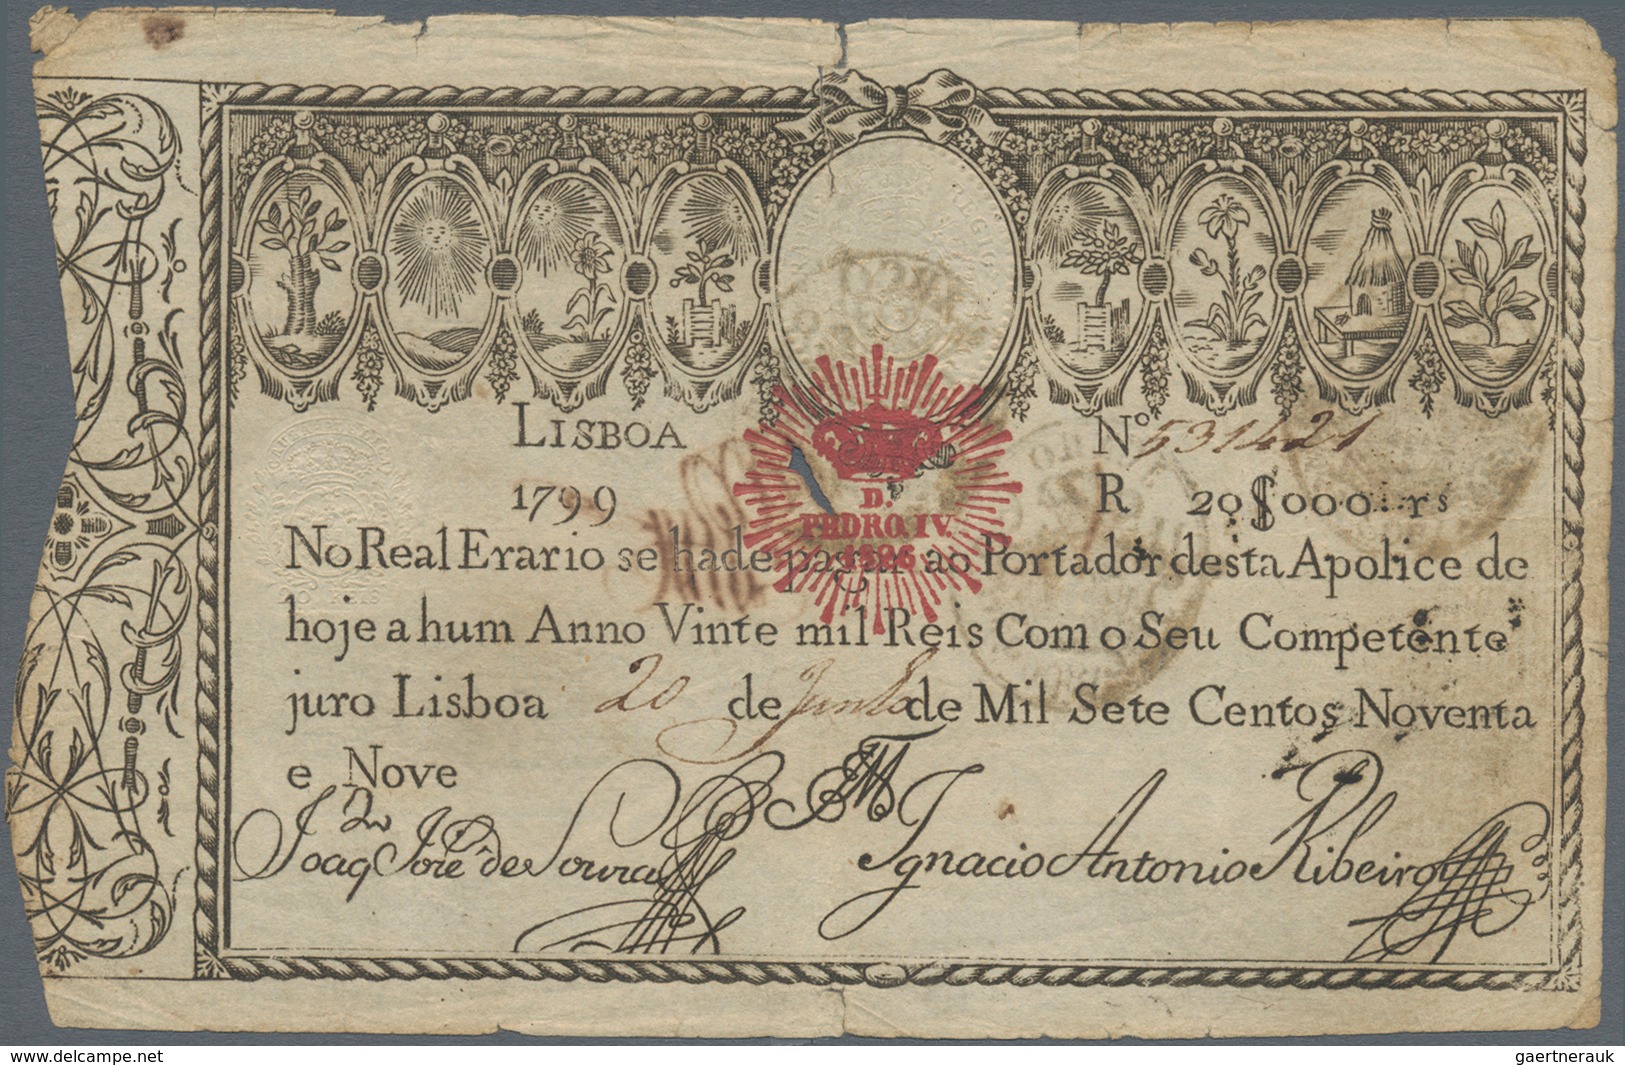 LISBOA
Nº 531421
1799
R 20$000 rs
D.
PEDRO. IV.
1826
No Real Erario se hade pagar ao Portador desta Apolice de
hoje a hum Anno Vinte mil Reis Com o Seu Competente
juro Lisboa 20 de Junho de Mil Sete Centos Noventa
e Nove
Joaq José de Souza
Ignacio Antonio Ribeiro
delcampe.net
gaertnerauk